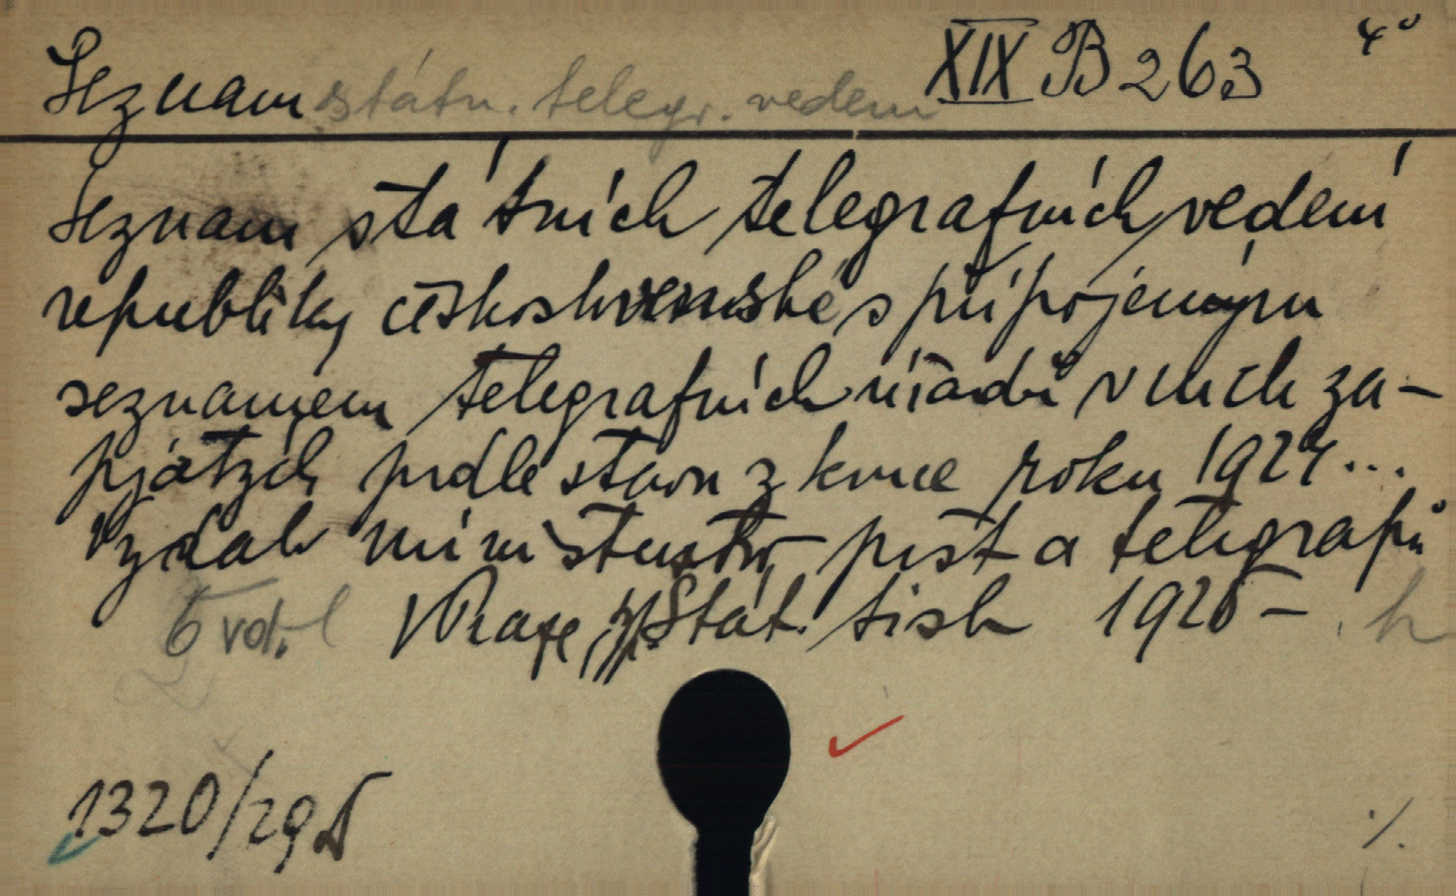 Seznam státn. telegr. vedení XIX B 263 4°
Seznam státních telegrafních vedení
republiky československé s připojeným
seznamem telegrafních úřadů v nich za-
pjatých podle stavu z konce roku 1924...
Vydalo ministerstvo pošt a telegrafů
V Praze, Stát. tisk 1925 –
1320/29 D